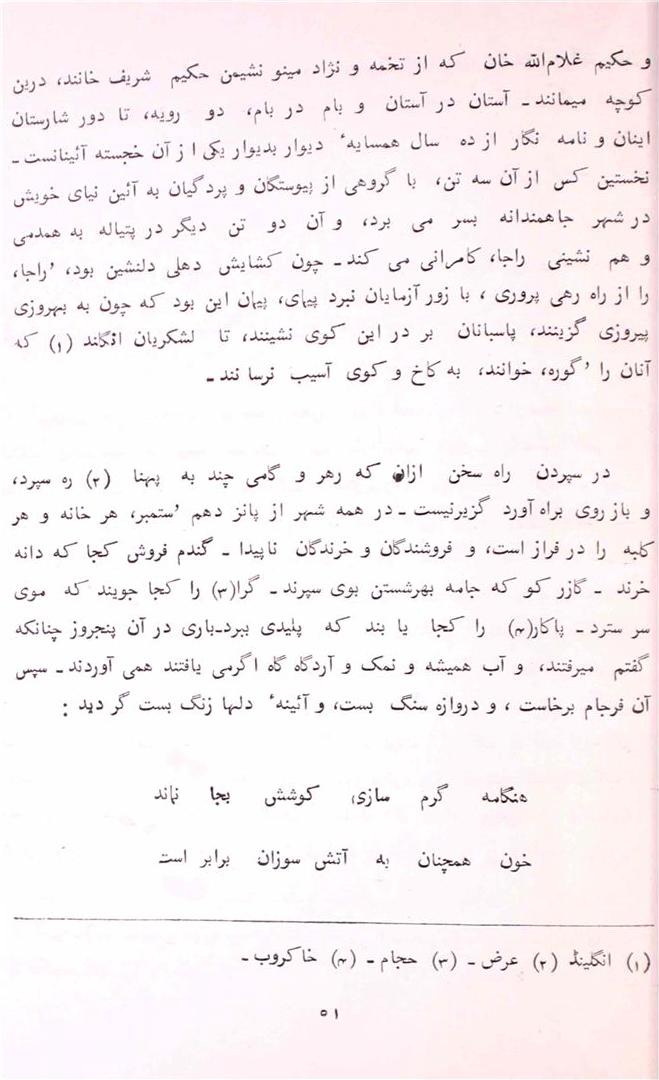 و حکیم غلام‌الله خان که از تخمه و نژاد مینو نشیمن حکیم شریف خانند، درین
کوچه میمانند ـ آستان در آستان و بام در بام، دو رویه، تا دور شارستان
اینان و نامه نگار از ده سال همسایهٴ دیوار بدیوار یکی از آن خجسته آئینانست ـ
نخستین کس از آن سه تن، با گروهی از پیوستگان و پردگیان به آئین نیای خویش
در شهر جاهمندانه بسر می برد، و آن دو تن دیگر در پتیاله به همدمی
و هم نشینی راجا، کامرانی می کند ـ چون کشایش دهلی دلنشین بود، ’راجا،
را از راه رهی پروری ، با زور آزمایان نبرد پیمای، پیمان این بود که چون به بهروزی
پیروزی گزینند، پاسبانان بر در این کوی نشینند، تا لشکریان انگلند (۱) که
آنان را ’گوره، خوانند، به کاخ و کوی آسیب نرسانند ـ
در سپردن راه سخن ازان که رهر و گامی چند به پهنا (۲) ره سپرد،
و باز روی براه آورد گزیرنیست ـ در همه شهر از پانز دهم ’ستمبر، هر خانه و هر
کلبه را در فراز است، و فروشندگان و خرندگان ناپیدا ـ گندم فروش کجا که دانه
خرند ـ گازر کو که جامه بهرشستن بوی سپرند ـ گرا(۳) را کجا جویند که موی
سر سترد ـ پاکار(۴) را کجا یا بند که پلیدی ببرد ـ باری در آن پنجروز چنانکه
گفتم میرفتند، و آب همیشه و نمک و آردگاه گاه اگرمی یافتند همی آوردند ـ سپس
آن فرجام برخاست ، و دروازه سنگ بست، و آئینهٴ دلها زنگ بست گر دید :
هنگامه گرم سازی کوشش بجا نماند
خون همچنان به آتش سوزان برابر است
(۱) انگلینڈ (۲) عرض ـ (۳) حجام ـ (۴) خاکروب ـ
۵۱